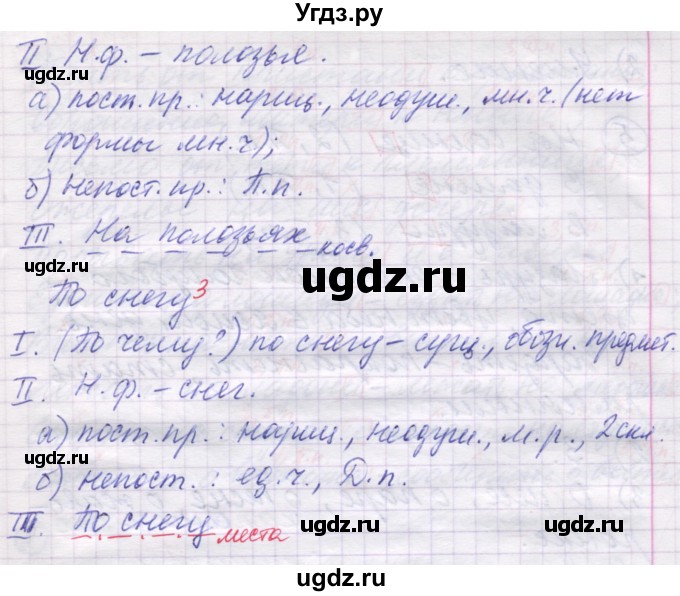 Угдз.ру
II Н.ф. – полозья.
а) пост. пр.: нариц., неодуш., мн.ч. (нет
формы мн.ч.);
б) непост. пр.: П.п.
III. На полозьях косв.
По снегу³
I. (По чему?) по снегу – сущ., обозн. предмет.
II. Н.ф. – снег.
а) пост. пр.: нариц., неодуш., м.р., 2 скл.
б) непост.: ед.ч., Д.п.
III. По снегу места
ugdz.ru
ugdz.ru
ugdz.ru
ugdz.ru
ugdz.ru
ugdz.ru
ugdz.ru
ugdz.ru
ugdz.ru
ugdz.ru
ugdz.ru